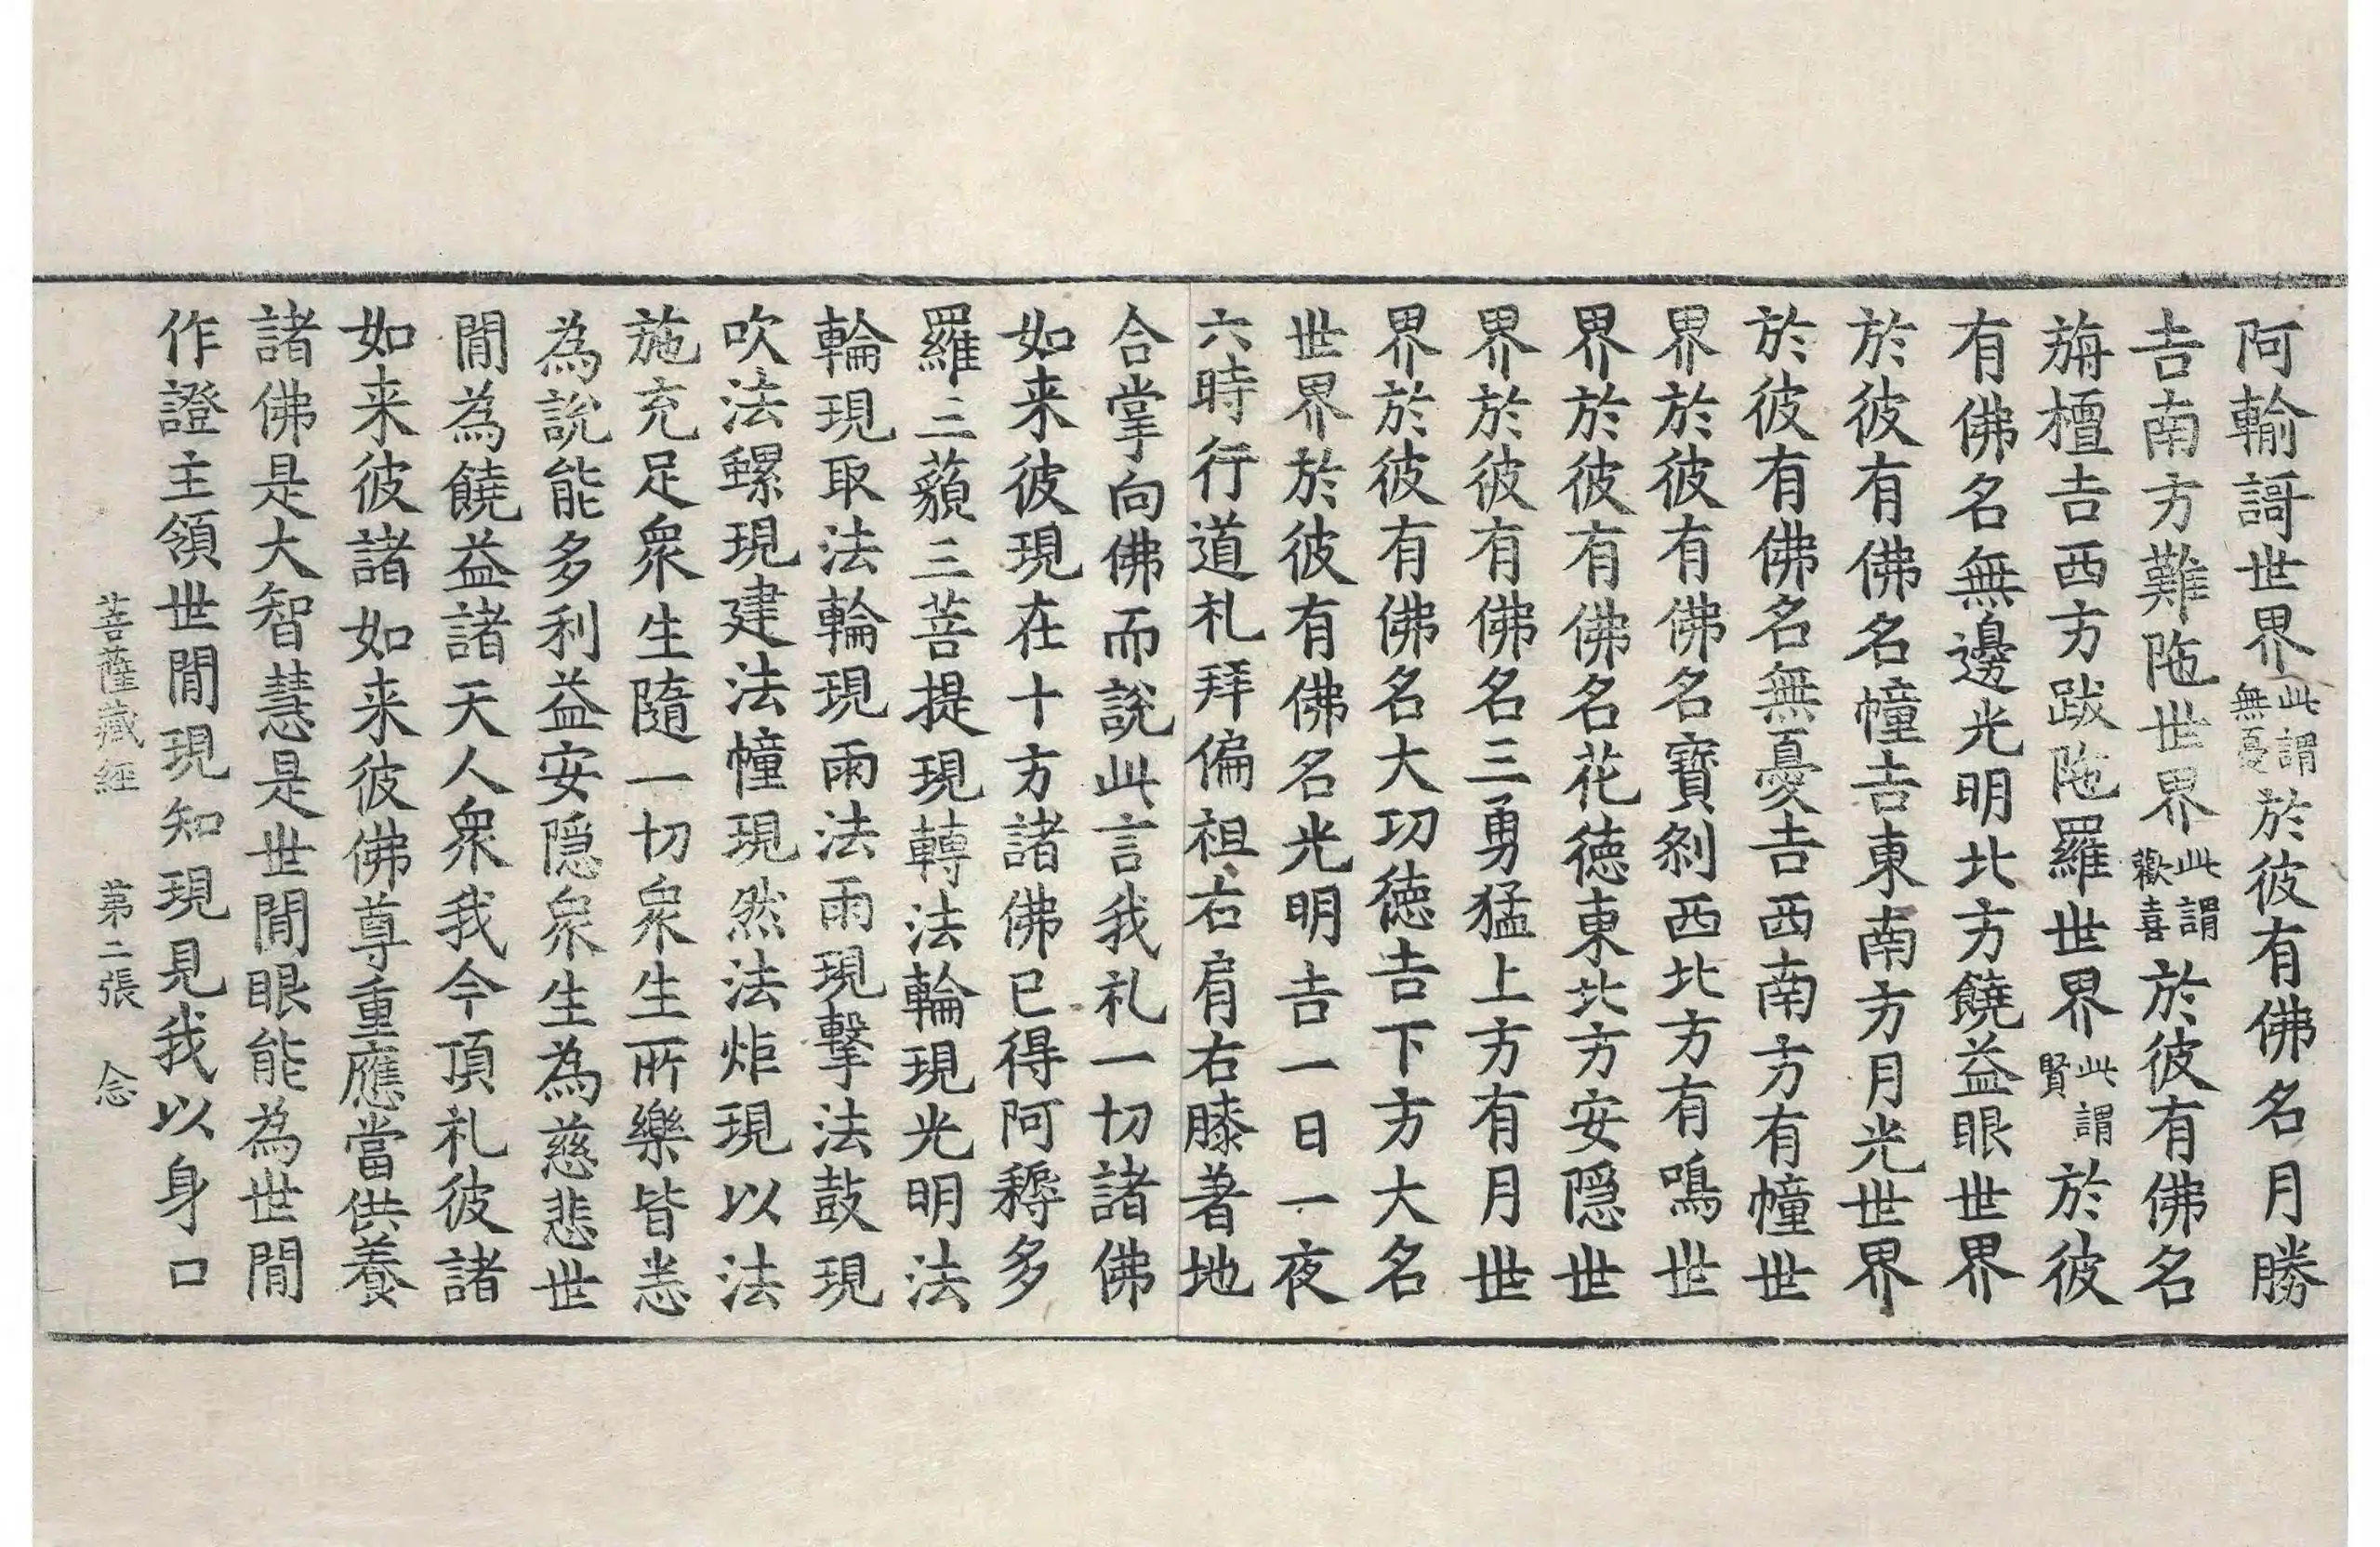 阿輸謌世界此謂無憂於彼有佛名月勝
吉南方難陁世界此謂歡喜於彼有佛名
旃檀吉西方跋陁羅世界此謂賢於彼
有佛名無邊光明北方饒益眼世界
於彼有佛名幢吉東南方月光世界
於彼有佛名無憂吉西南方有幢世
界於彼有佛名寶刹西北方有鳴世
界於彼有佛名花徳東北方安隠世
界於彼有佛名三勇猛上方有月世
界於彼有佛名大功徳吉下方大名
世界於彼有佛名光明吉一日一夜
六時行道礼拜偏袒右肩右膝著地
合掌向佛而說此言我礼一切諸佛
如来彼現在十方諸佛已得阿耨多
羅三藐三菩提現轉法輪現光明法
輪現取法輪現雨法雨現擊法鼓現
吹法螺現建法幢現然法炬現以法
施充足衆生隨一切衆生所樂皆悉
為說能多利益安隠衆生為慈悲世
閒為饒益諸天人衆我今頂礼彼諸
如来彼諸如来彼佛尊重應當供養
諸佛是大智慧是世閒眼能為世閒
作證主領世閒現知現見我以身口
菩薩藏經 第二張 念